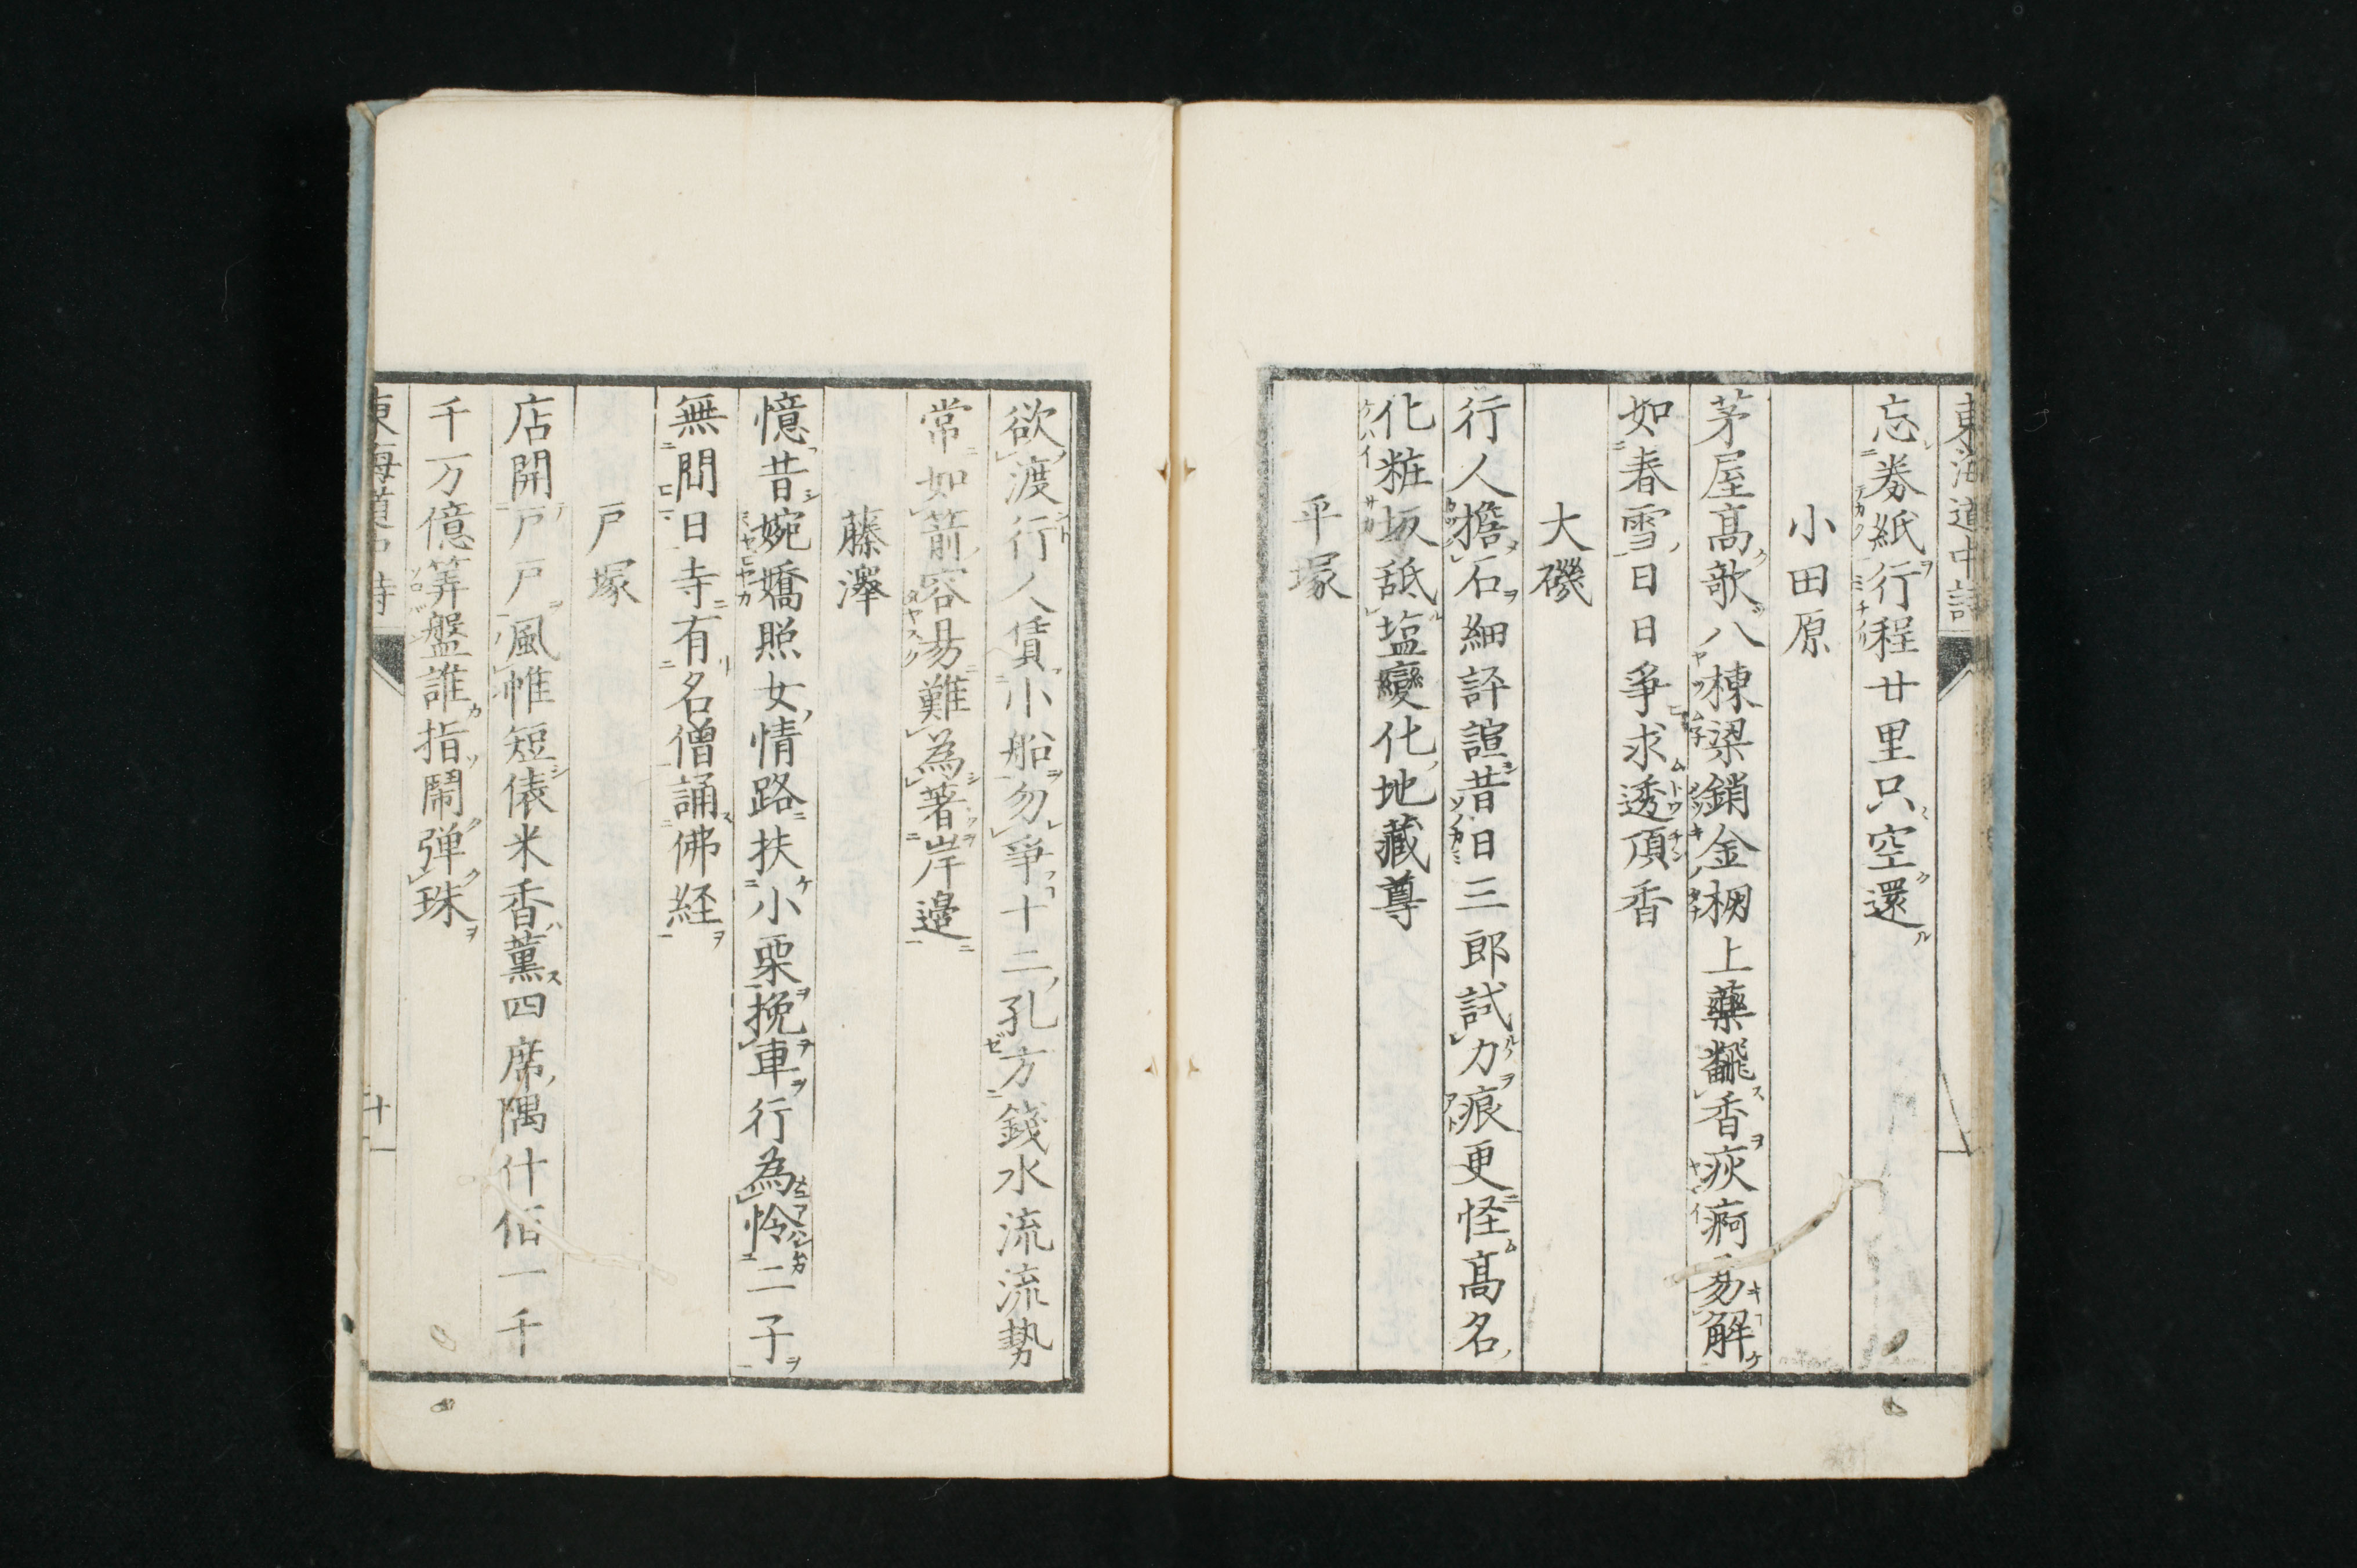 東海道中詩
忘劵紙行程廿里只空還
小田原
茅屋高歌八棟梁銷金棚上藥飜香疢痾易解
如春雪日日爭求透頂香
大磯
行人擔石細評諠昔日三郎試力痕更怪高名
化粧坂舐塩變化地藏尊
平塚
欲渡行人賃小船勿爭十二孔方錢水流流勢
常如箭容易難為著岸邊
藤澤
憶昔婉嬌照女情路扶小栗挽車行為怜二子
無間日寺有名僧誦佛経
戸塚
店開戸戸風帷短俵米香薰四席隅什佰一千
千万億筭盤誰指鬧弾珠
東海道中詩
十一